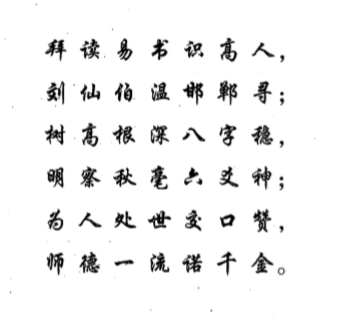 拜读易书识高人，
刘仙伯温邯郸寻；
树高根深八字稳，
明察秋毫六爻神；
为人处世交口赞，
师德一流诺千金。